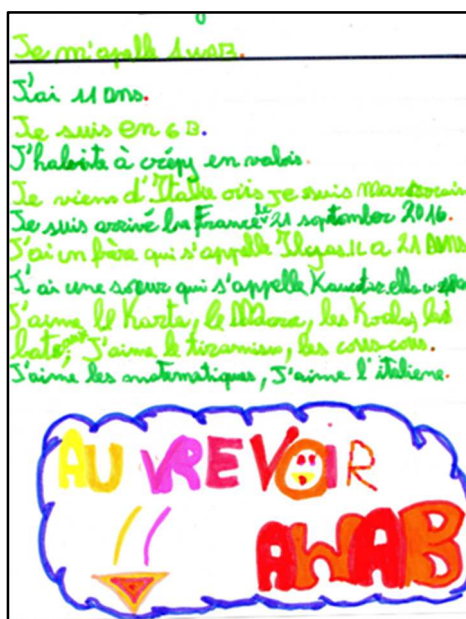 Je m'apelle AwAB.
J'ai 11 ans.
Je suis en 6 B.
J'habite à crépy en valois.
Je viens d'Italie je suis marocain
Je suis arrivé en France le 21 septembre 2016.
J'ai un frère qui s'appelle Ilyas il a 21 ANS
J'ai une soeur qui s'appelle elle a
J'aime le Karta, le les les
J'aime le tiramisu, les cous-cous.
J'aime les matematiques, J'aime l'italiene.
AU VREVOIR
AWAB